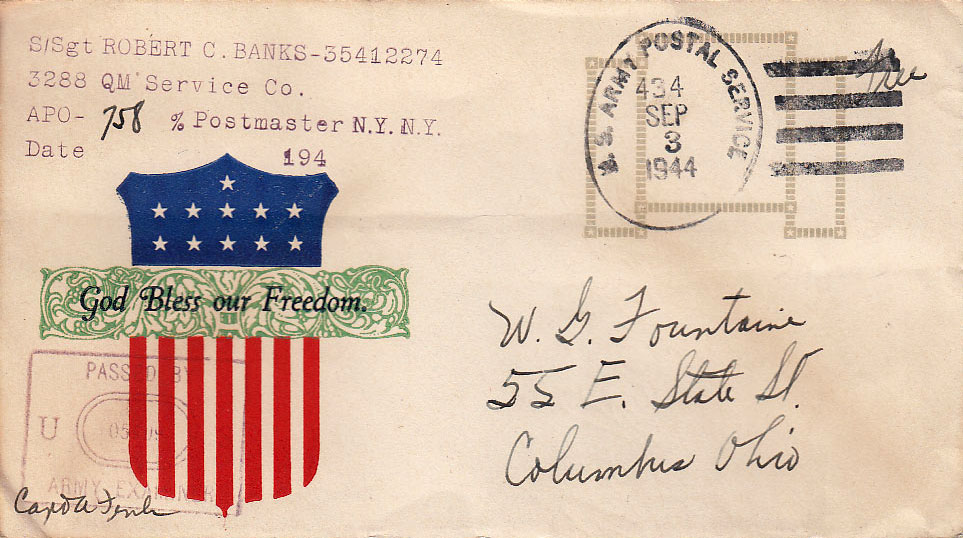 S/Sgt ROBERT C. BANKS-35412274
3288 QM Service Co.
APO- 758 % Postmaster N.Y. N.Y.
Date 194
U. S. ARMY POSTAL SERVICE
434
SEP
3
1944
free
God Bless our Freedom.
W. G. Fountaine
55 E. State St.
Columbus Ohio
PASSED BY
U
ARMY EXAMINER